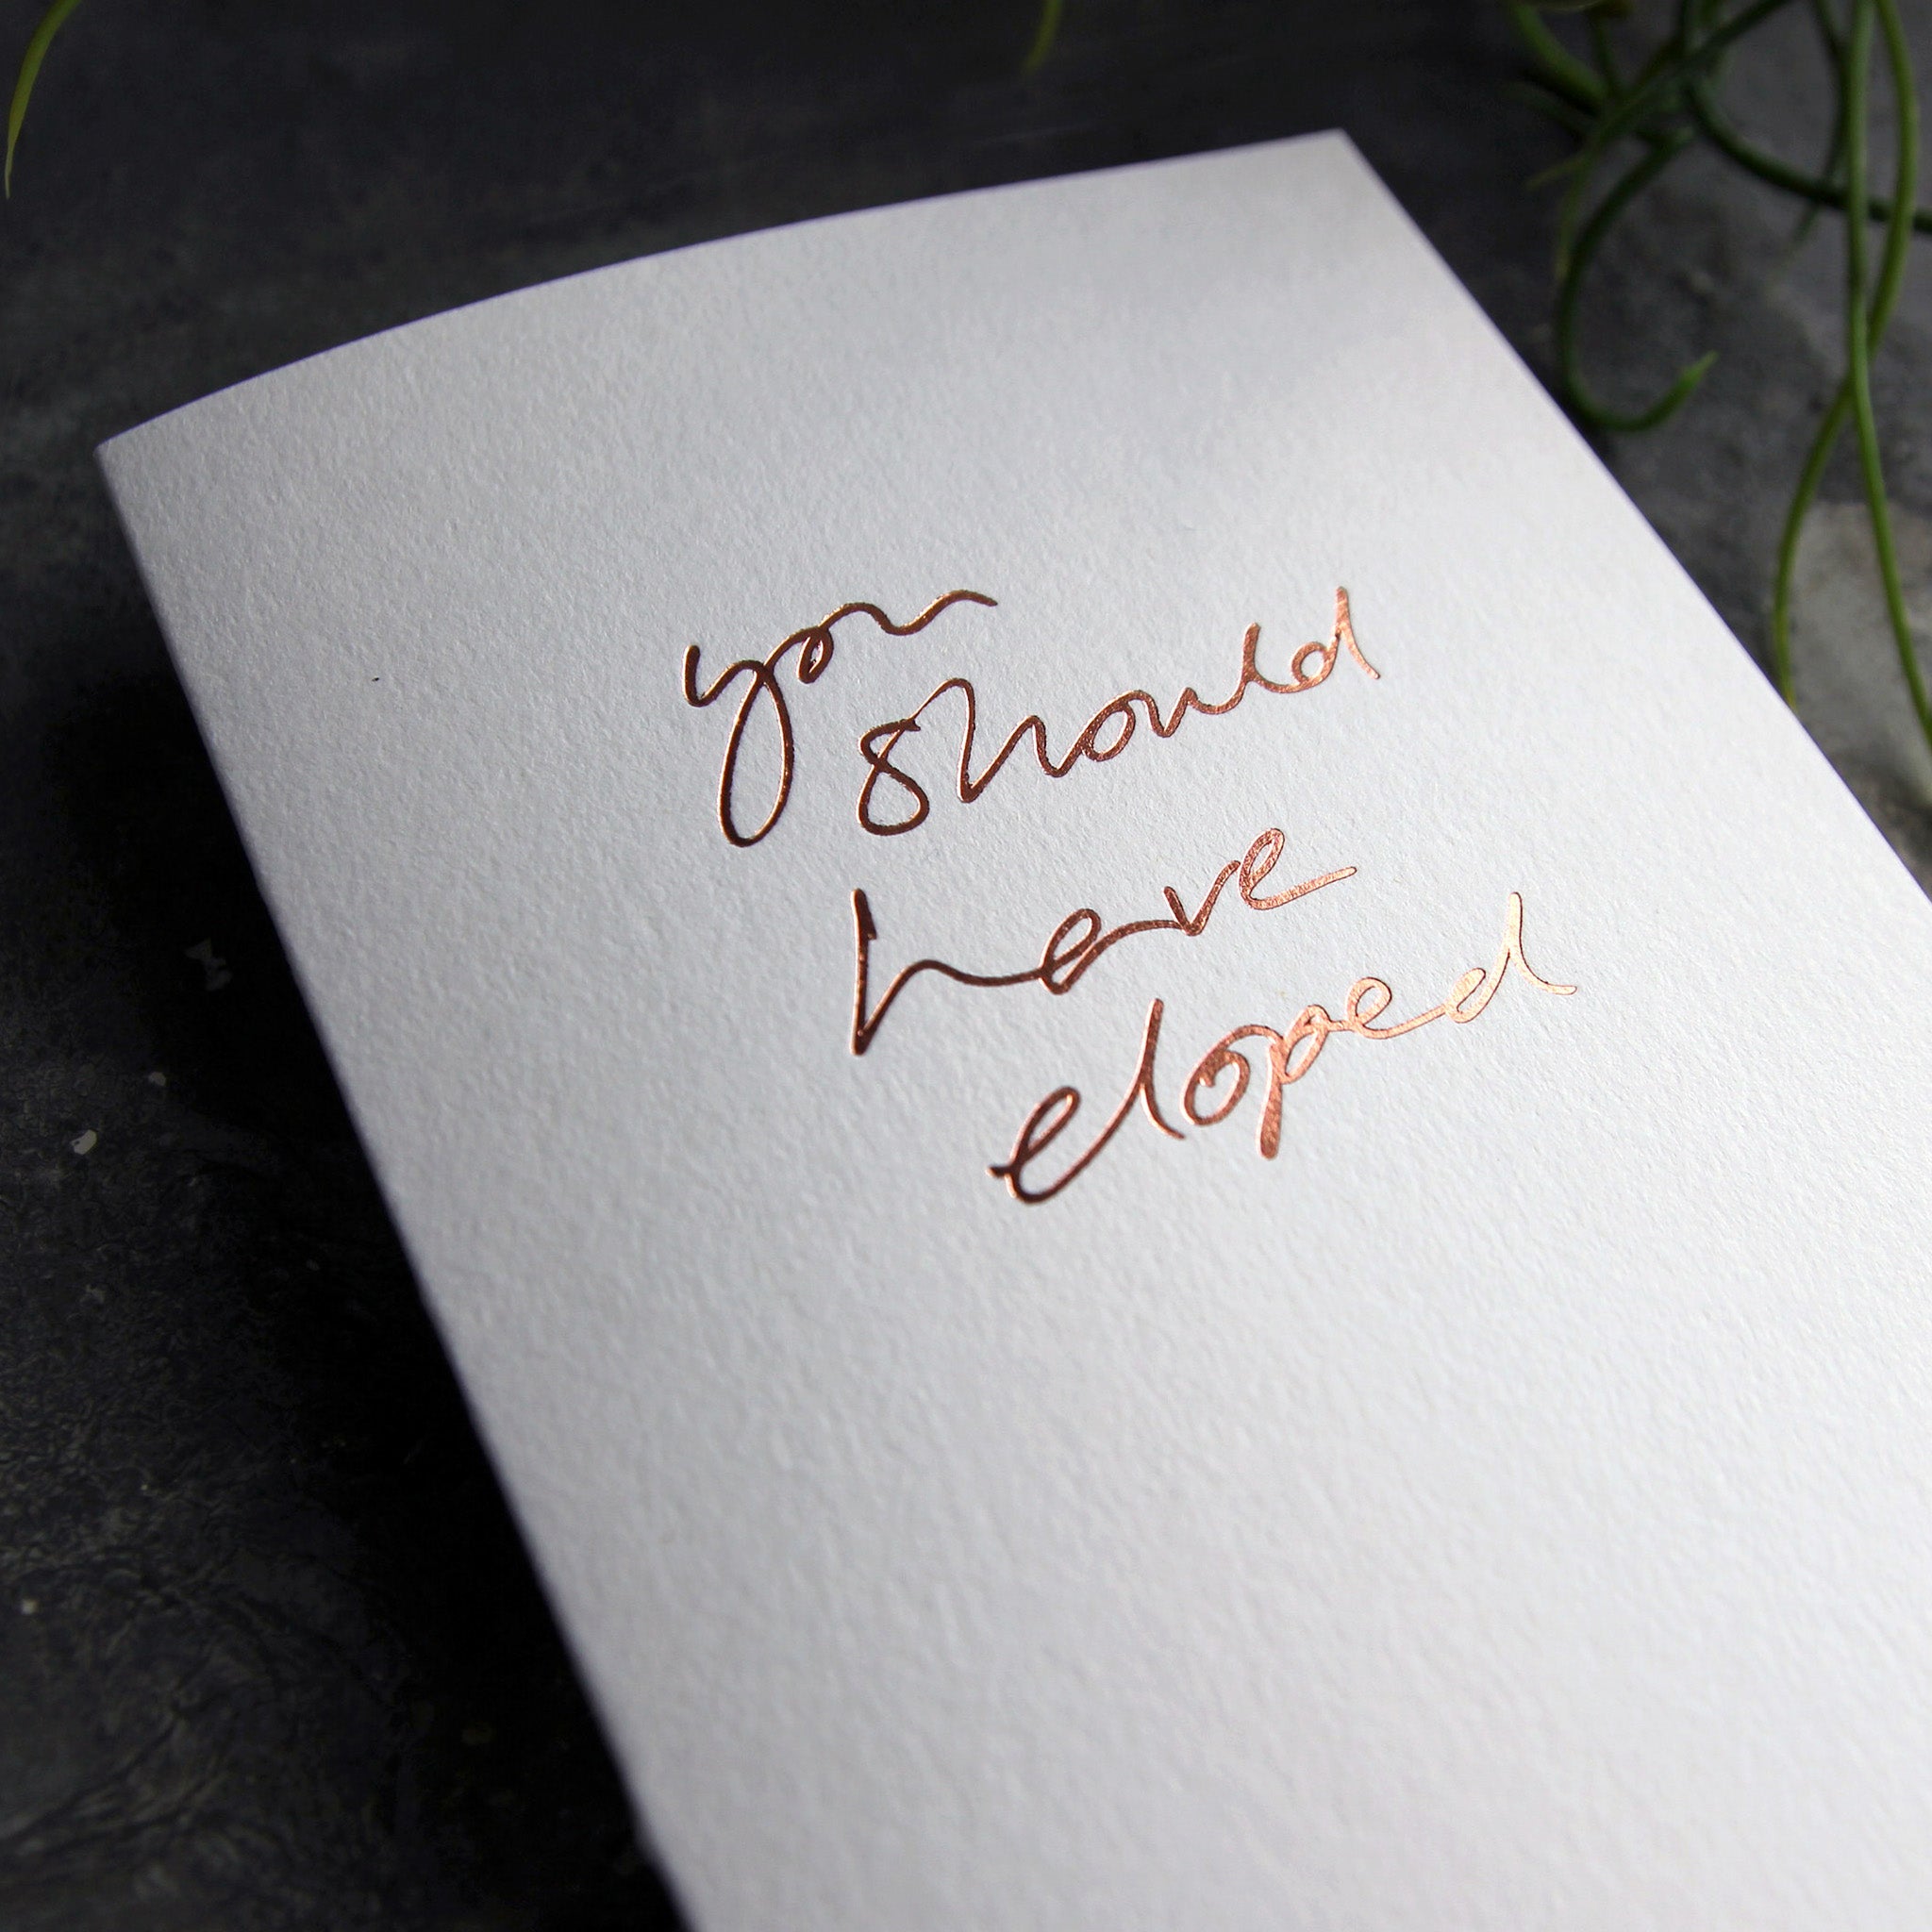 you
should
have
eloped